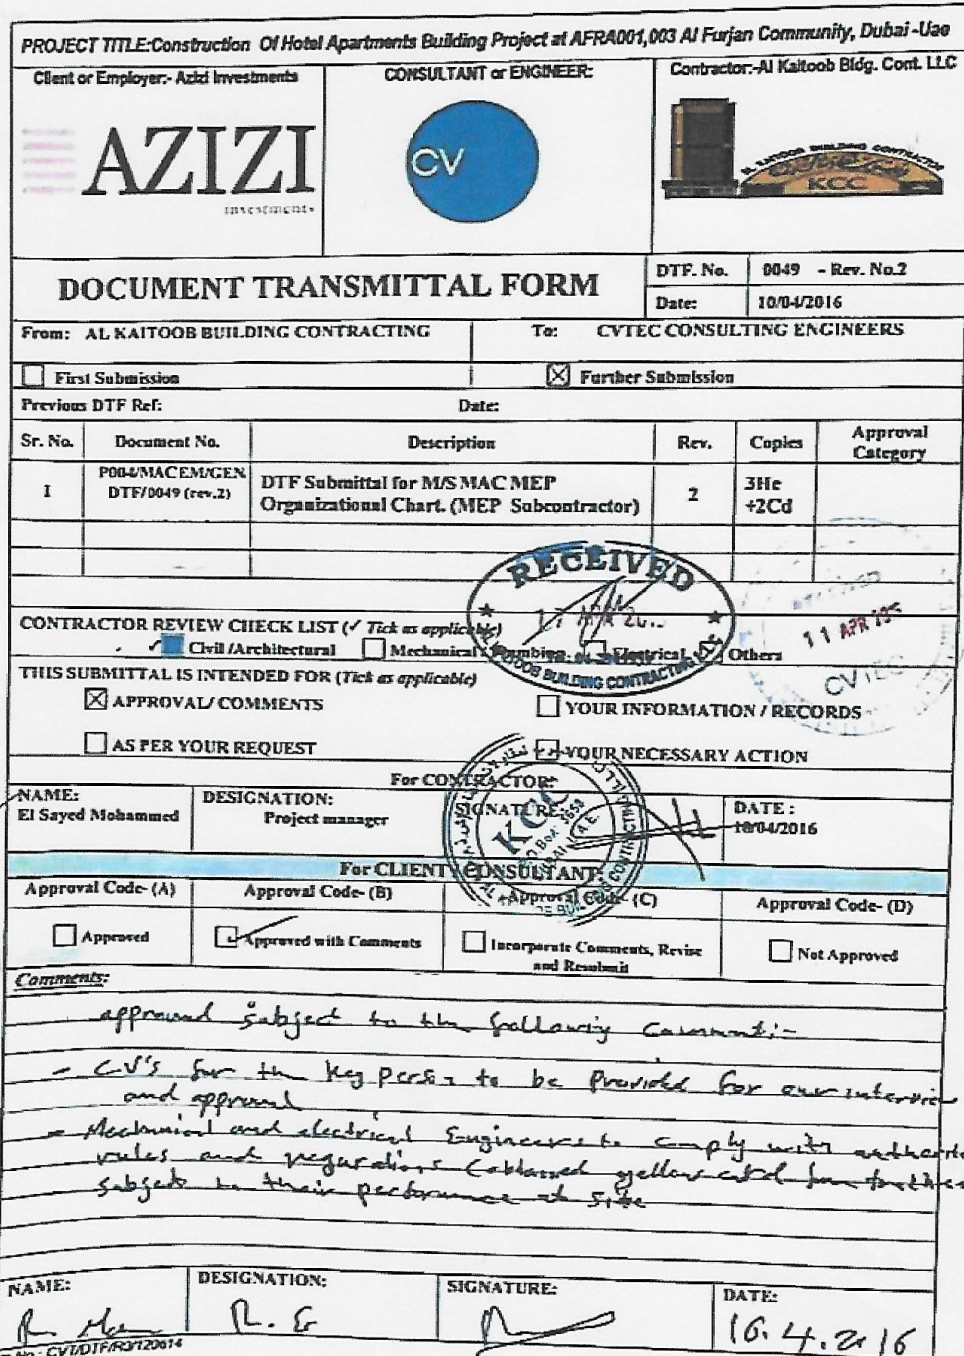 PROJECT TITLE:Construction Of Hotel Apartments Building Project at AFRA001,003 Al Furjan Community, Dubai -Uae
Client or Employer:- Azizi Investments
CONSULTANT or ENGINEER:
Contractor:-Al Kaitoob Bldg. Cont. LLC
AZIZI
investments
CV
AL KAITOOB BUILDING CONTRACTOR
KCC
DOCUMENT TRANSMITTAL FORM
DTF. No. 0049 - Rev. No.2
Date: 10/04/2016
From: AL KAITOOB BUILDING CONTRACTING To: CVTEC CONSULTING ENGINEERS
First Submission Further Submission
Previous DTF Ref: Date:
Sr. No. Document No. Description Rev. Copies Approval Category
1 P004/MACEM/GEN DTF/0049 (rev.2) DTF Submittal for M/S MAC MEP Organizational Chart. (MEP Subcontractor) 2 3He +2Cd
RECEIVED
AL KAITOOB BUILDING CONTRACTING
11 APR
CVTEC
CONTRACTOR REVIEW CHECK LIST (✓ Tick as applicable)
Civil /Architectural Mechanical Plumbing Electrical Others
THIS SUBMITTAL IS INTENDED FOR (Tick as applicable)
APPROVAL/ COMMENTS YOUR INFORMATION / RECORDS
AS PER YOUR REQUEST YOUR NECESSARY ACTION
For CONTRACTOR:
NAME: DESIGNATION: SIGNATURE: DATE :
El Sayed Mohammed Project manager 10/04/2016
KCC
P.O.Box:
For CLIENT/CONSULTANT:
Approval Code- (A) Approval Code- (B) Approval Code- (C) Approval Code- (D)
Approved Approved with Comments Incorporate Comments, Revise and Resubmit Not Approved
Comments:
approved subject to the following Comment:-
- CV's for the key person to be Provided for our interview
and approval
- Mechanical and electrical Engineers to comply with
rules and regurations (obtained yellow card
subject to their performance at site
NAME: DESIGNATION: SIGNATURE: DATE:
R. E 16.4.2016
No : CVT/DTF/R3/120614